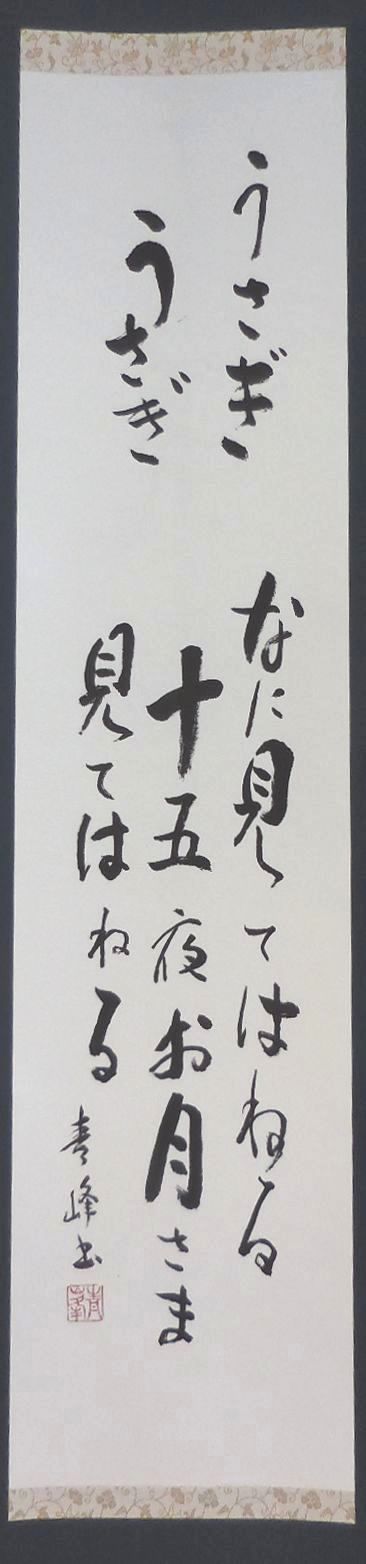 うさぎ
うさぎ
なに見てはねる
十五夜お月さま
見てはねる
青峰書
青峯